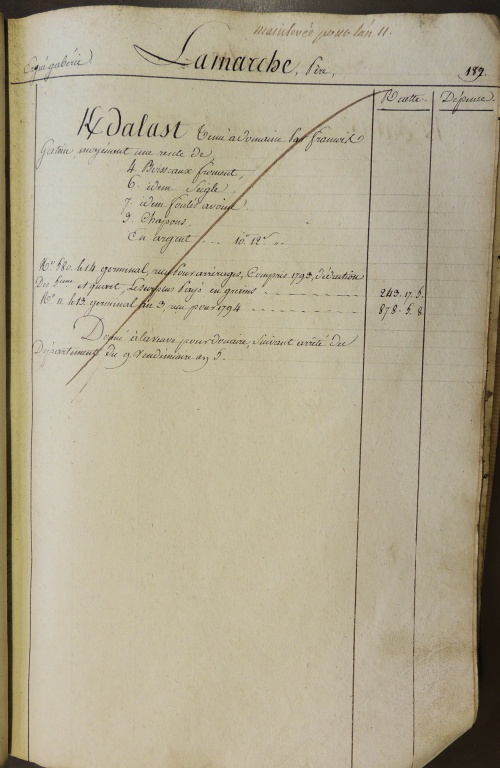 mainlevée pour l'an 11.
Ergué gabéric
Lamarche, Père,
189.
Recette Dépense
Kdalast Tenu à domaine par francois
Gatain moyennant une rente de
4. Boisseaux froment,
6. idem Seigle,
7. idem foulés avoine,
3. Chapons.
En argent ... 10.tt 12.s "
No. 580. le 14. germinal, reçu pour arrérages, Compris 1793, déduction
Des 5eme et quart, le surplus payé en grains 243. 17. 6.
No. 11. le 13. germinal an 3, reçu pour 1794 878. 5. 8
Donné à la veuve pour douaire, Suivant arrêté du
Département du 9. Vendémiaire an 5.